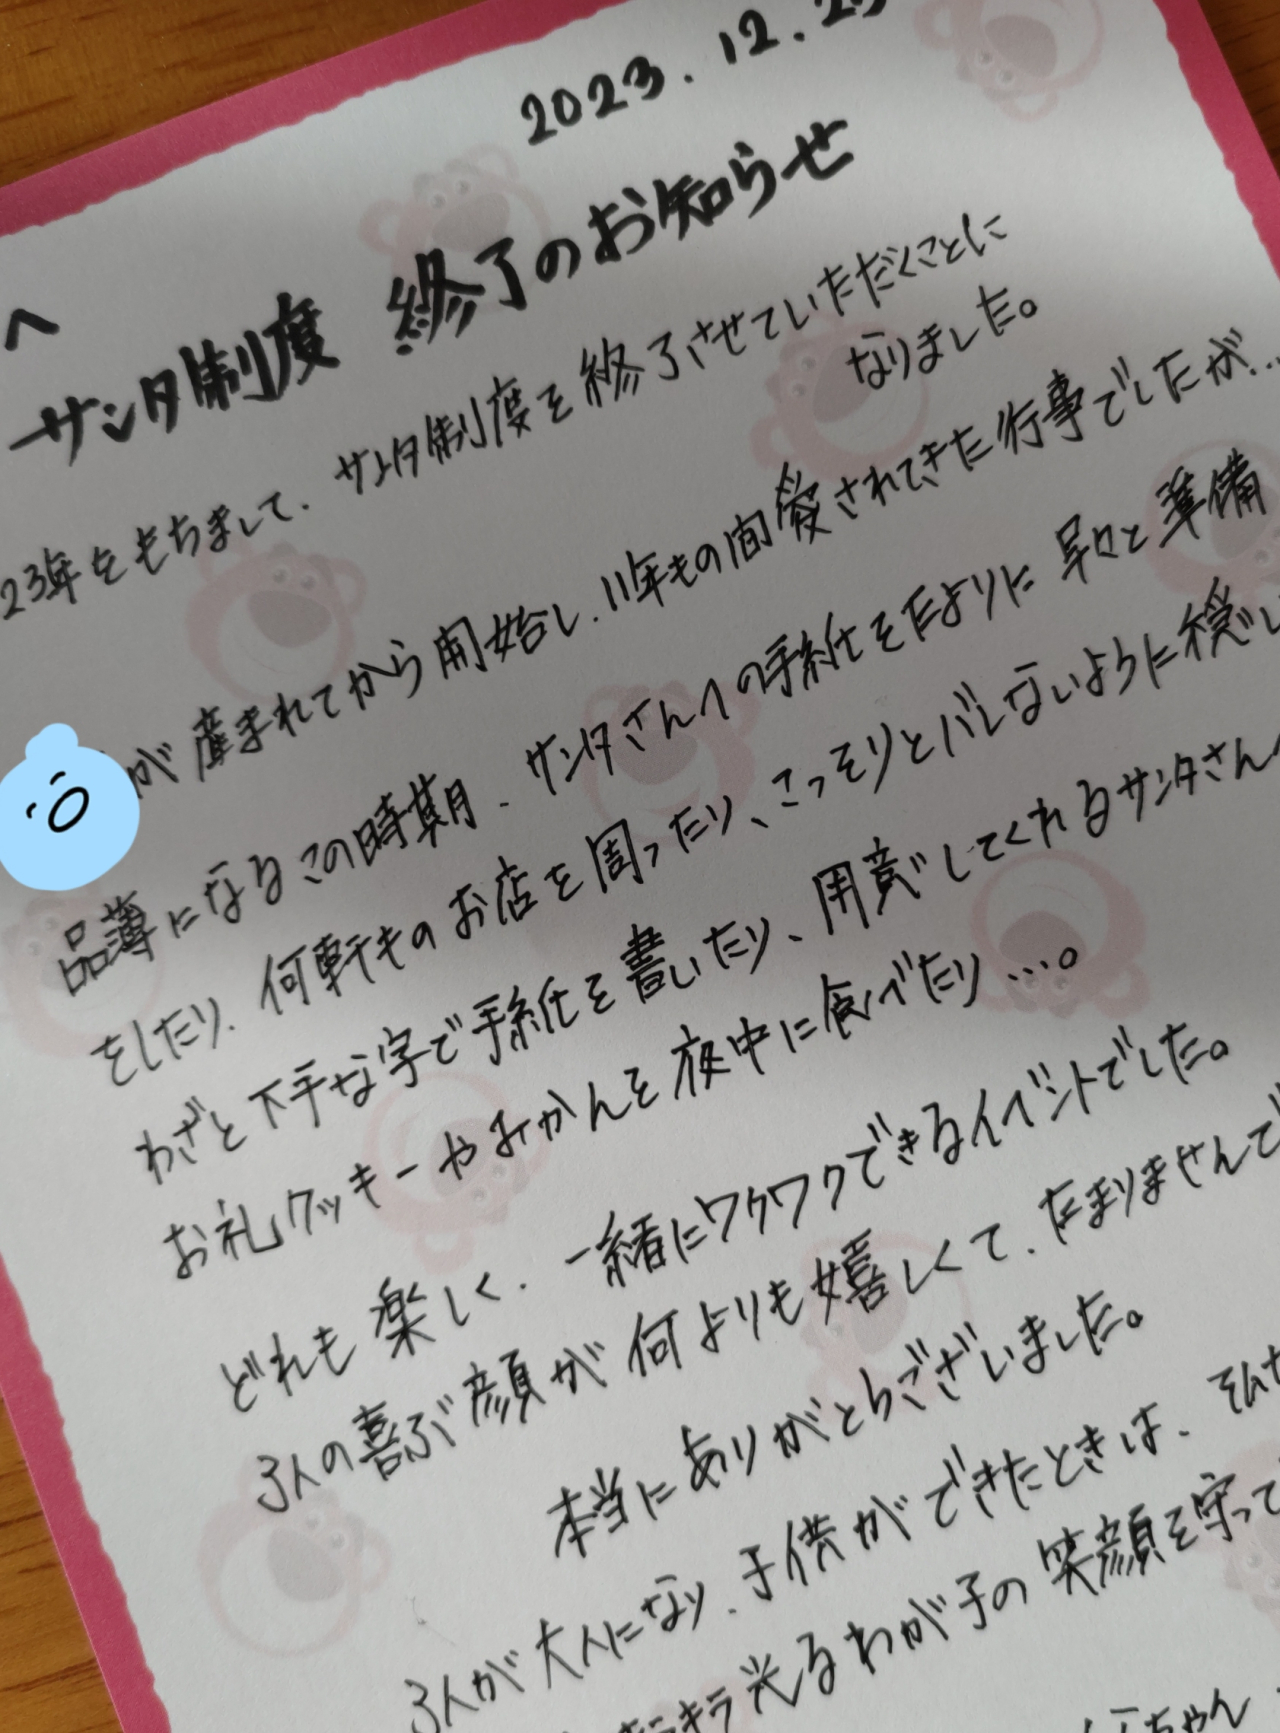 2023.12.25
へ
サンタ制度 終了のお知らせ
23年をもちまして、サンタ制度を終了させていただくことに
なりました。
が産まれてから開始し、11年もの間愛されてきた行事でしたが…
品薄になるこの時期、サンタさんへの手紙をたよりに早々と準備
をしたり、何軒ものお店を周ったり、こっそりとバレないように隠し
わざと下手な字で手紙を書いたり、用意してくれるサンタさんへ
お礼クッキーやみかんを夜中に食べたり…。
どれも楽しく、一緒にワクワクできるイベントでした。
3人の喜ぶ顔が何よりも嬉しくて、たまりませんで
本当にありがとうございました。
3人が大人になり、子供ができたときは、そんな
キラキラ光るわが子の笑顔を守って
ちゃん